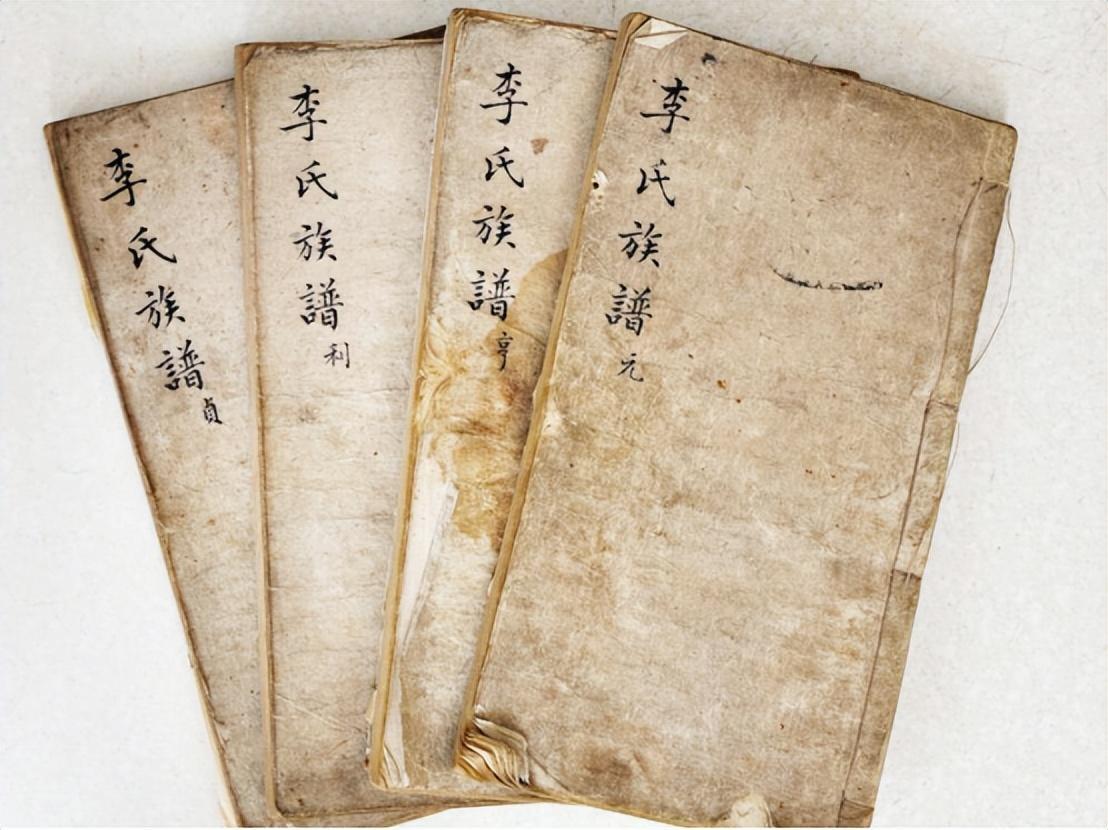 李氏族譜元
李氏族譜亨
李氏族譜利
李氏族譜貞